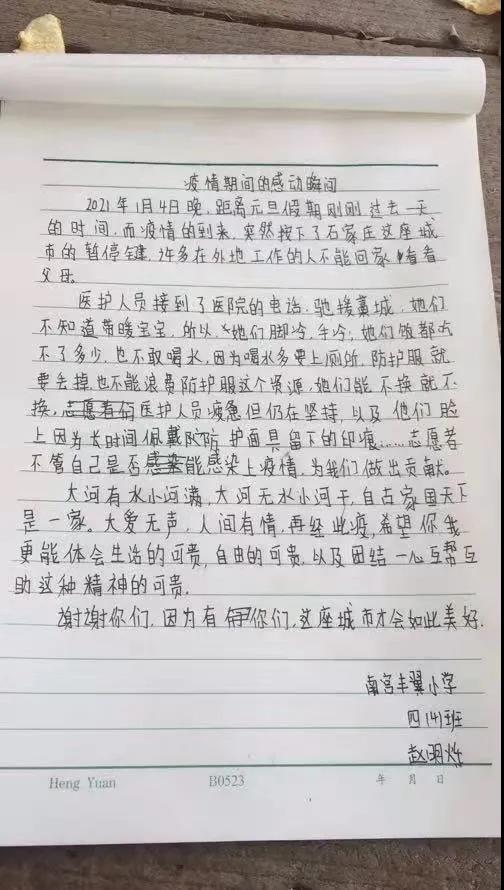 疫情期间的感动瞬间
2021年1月4日晚，距离元旦假期刚刚过去一天
的时间，而疫情的到来，突然按下了石家庄这座城
市的暂停键，许多在外地工作的人不能回家看看
父母。
医护人员接到了医院的电话，驰援藁城，她们
不知道带暖宝宝，所以她们脚冷，手冷，她们饭都吃
不了多少，也不敢喝水，因为喝水多要上厕所，防护服就
要丢掉，也不能浪费防护服这个资源，她们能不换就不
换，志愿者们医护人员疲惫但仍在坚持，以及他们脸
上因为长时间佩戴防护面具留下的印痕……志愿者
不管自己是否感染能感染上疫情，为我们做出贡献。
大河有水小河满，大河无水小河干，自古家国天下
是一家。大爱无声，人间有情，再经此疫，希望你我
更能体会生活的可贵，自由的可贵，以及团结一心互帮互
助这种精神的可贵，
谢谢你们，因为有你们，这座城市才会如此美好.
南宫丰翼小学
四（4）班
赵明
Heng Yuan B0523 年 月 日